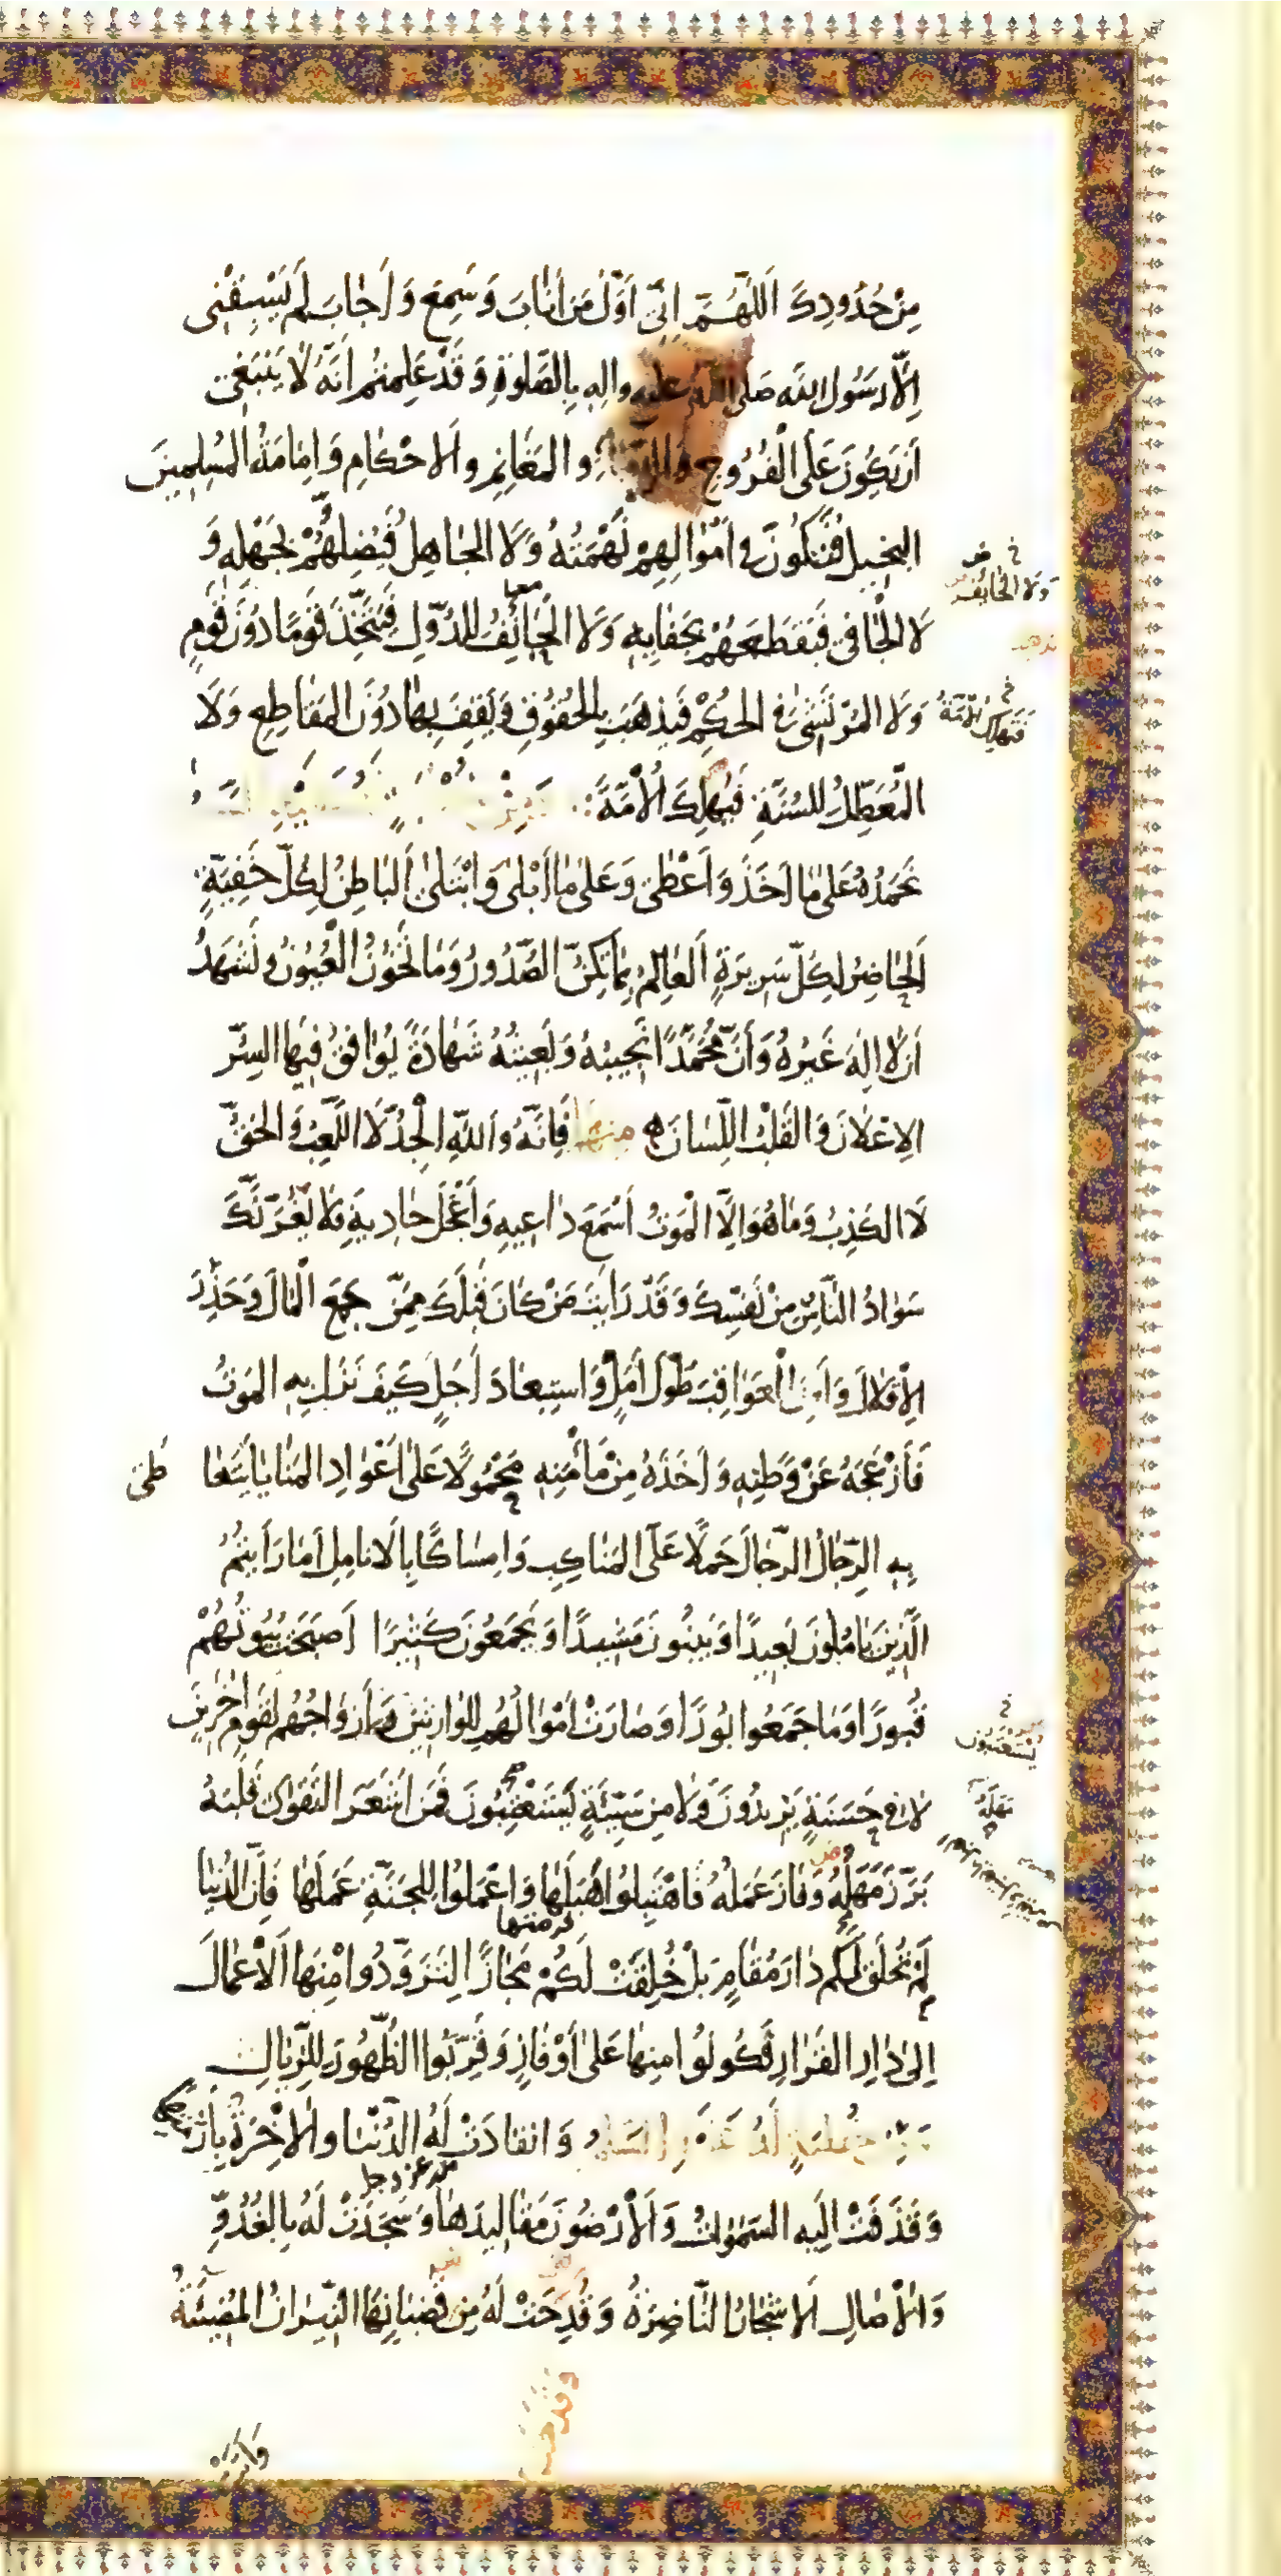 مِنْ حُدُودِكَ اَللّٰهُمَّ اِنّى اَوَّلُ مَن اَنابَ وَ سَمِعَ وَ اَجابَ لَم يَسْبِقْنى
اِلّا رَسُولُ اللهِ صَلَّى اللهُ عليه واله بِالصَّلوةِ وَ قَدْ عَلِمتُم اَنَّهُ لا يَنبَغى
اَن يَكُونَ عَلَى الْفُرُوجِ وَالدِّماءِ و المَغانِمِ و اَلاَحْكامِ وَ اِمامَةِ المُسلِمينَ
البَخِيلُ فَتَكُونَ فى اَمْوالِهِمْ نَهْمَتُهُ وَلَا الجاهِلُ فَيُضِلَّهُمْ بِجَهْلِهِ وَ
لَا الْجافى فَيَقطَعَهُمْ بِجَفائِهِ وَ لَا الحَائِفُ لِلدُّوَلِ فَيَتَّخِذَ قَومًا دُونَ قَومٍ
وَ لَا المُرتَشى فى الحُكمِ فَيَذهَبَ بِالحُقُوقِ وَ يَقِفَ بِها دُونَ المَقاطِعِ وَ لَا
المُعَطِّلُ لِلسُنَّةِ فَيُهلِكَ الاُمَّةَ
نَحمَدُهُ عَلى ما اَخَذَ وَ اَعْطى وَ عَلى ما اَبْلى وَ ابْتَلى اَلباطِنُ لِكُلِّ خَفِيَّةٍ
اَلحاضِرُ لِكُلِّ سَرِيرَةٍ اَلعالِمُ بِما تُكِنُّ الصُّدُورُ وَ مَا تَخُونُ العُيُونُ و نَشهَدُ
اَن لا اِلهَ غَيرُهُ وَ أَنَّ مُحَمَّدًا نَجيبُهُ وَ بَعِيثُهُ شَهادَةً يُوافِقُ فِيهَا السِّرُّ
الاِعْلانَ وَ القَلْبُ اللِّسانَ منها فَاِنَّهُ و اللهِ الْجِدُّ لَا اللَّعِبُ وَ الحَقُّ
لَا الكَذِبُ وَ ما هُوَ اِلَّا الْمَوتُ اَسْمَعَ داعِيهِ وَ أَعْجَلَ حادِيهِ فلا يَغُرَّنَّكَ
سَوادُ النّاسِ مِنْ نَفسِكَ وَ قَد رَاَيتَ مَن كانَ قَبلَكَ مِمَّن جَمَعَ الْمالَ وَ حَذِرَ
الاِقلالَ وَ اَمِنَ العَواقِبَ طُولَ اَمَلٍ وَ استِبعادَ اَجَلٍ كَيفَ نَزَلَ بِهِ المَوتُ
فَأَزْعَجَهُ عَنْ وَطَنِهِ وَ اَخَذَهُ مِنْ مَأْمَنِهِ مَحْمُولًا عَلى اَعْوادِ المَنايا يَتَعا طى
بِهِ الرِّجالُ الرِّجالَ حَملًا عَلَى المَناكِبِ وَ اِمساكًا بِالاَنامِلِ اَما رَأَيتُمُ
الَّذينَ يَامُلُونَ بَعِيدًا وَ يَبنُونَ مَشِيدًا وَ يَجمَعُونَ كَثِيرًا اَصبَحَت بُيُوتُهُمْ
قُبورًا وَ مَا جَمَعُوا بُورًا وَ صارَتْ اَمْوالُهُم لِلوارِثينَ وَ اَزواجُهُم لِقَومٍ اخَرِينَ
لا فى حَسَنَةٍ يَزيدُونَ وَ لا مِن سَيِّئَةٍ يَستَعْتِبُونَ فَمَن اَشعَرَ التَقوى قَلبَهُ
بَرَّزَ مَهَلُهُ وَ فازَ عَمَلُهُ فَاهْتَبِلُوا هَبَلَها وَ اعْمَلُوا لِلجَنَّةِ عَمَلَها فَاِنَّ الدُّنيا
لَمْ تُخلَق لَكُم دارَ مُقامٍ بَلْ خُلِقَتْ لَكُمْ مَجازًا لِتَزَوَّدُوا مِنهَا اَلاَعْمالَ
اِلى دارِ القَرارِ فَكُونُوا مِنها عَلى أَوْفازٍ وَ قَرِّبُوا الظُّهُورَ لِلزِّيالِ
وَ انقادَتْ لَهُ الدُّنْيا و الاْخِرَةُ بِاَزِمَّتِها
وَ قَذَفَتْ اِلَيهِ السَّمواتُ وَ اَلاَرَضُونَ مَقاليدَها وَ سَجَدَتْ لَهُ بِالغُدُوِّ
وَ الاْصالِ اَلاَشجارُ النّاضِرَةُ وَ قَدَحَتْ لَهُ مِن قُضبانِهَا النّيرانَ المُضيئَةَ
وَ لَا الخائِف
فَتَهلِكَ الاُمَّةُ
يُسْتَعْتَبُون
مَهَلَهُ